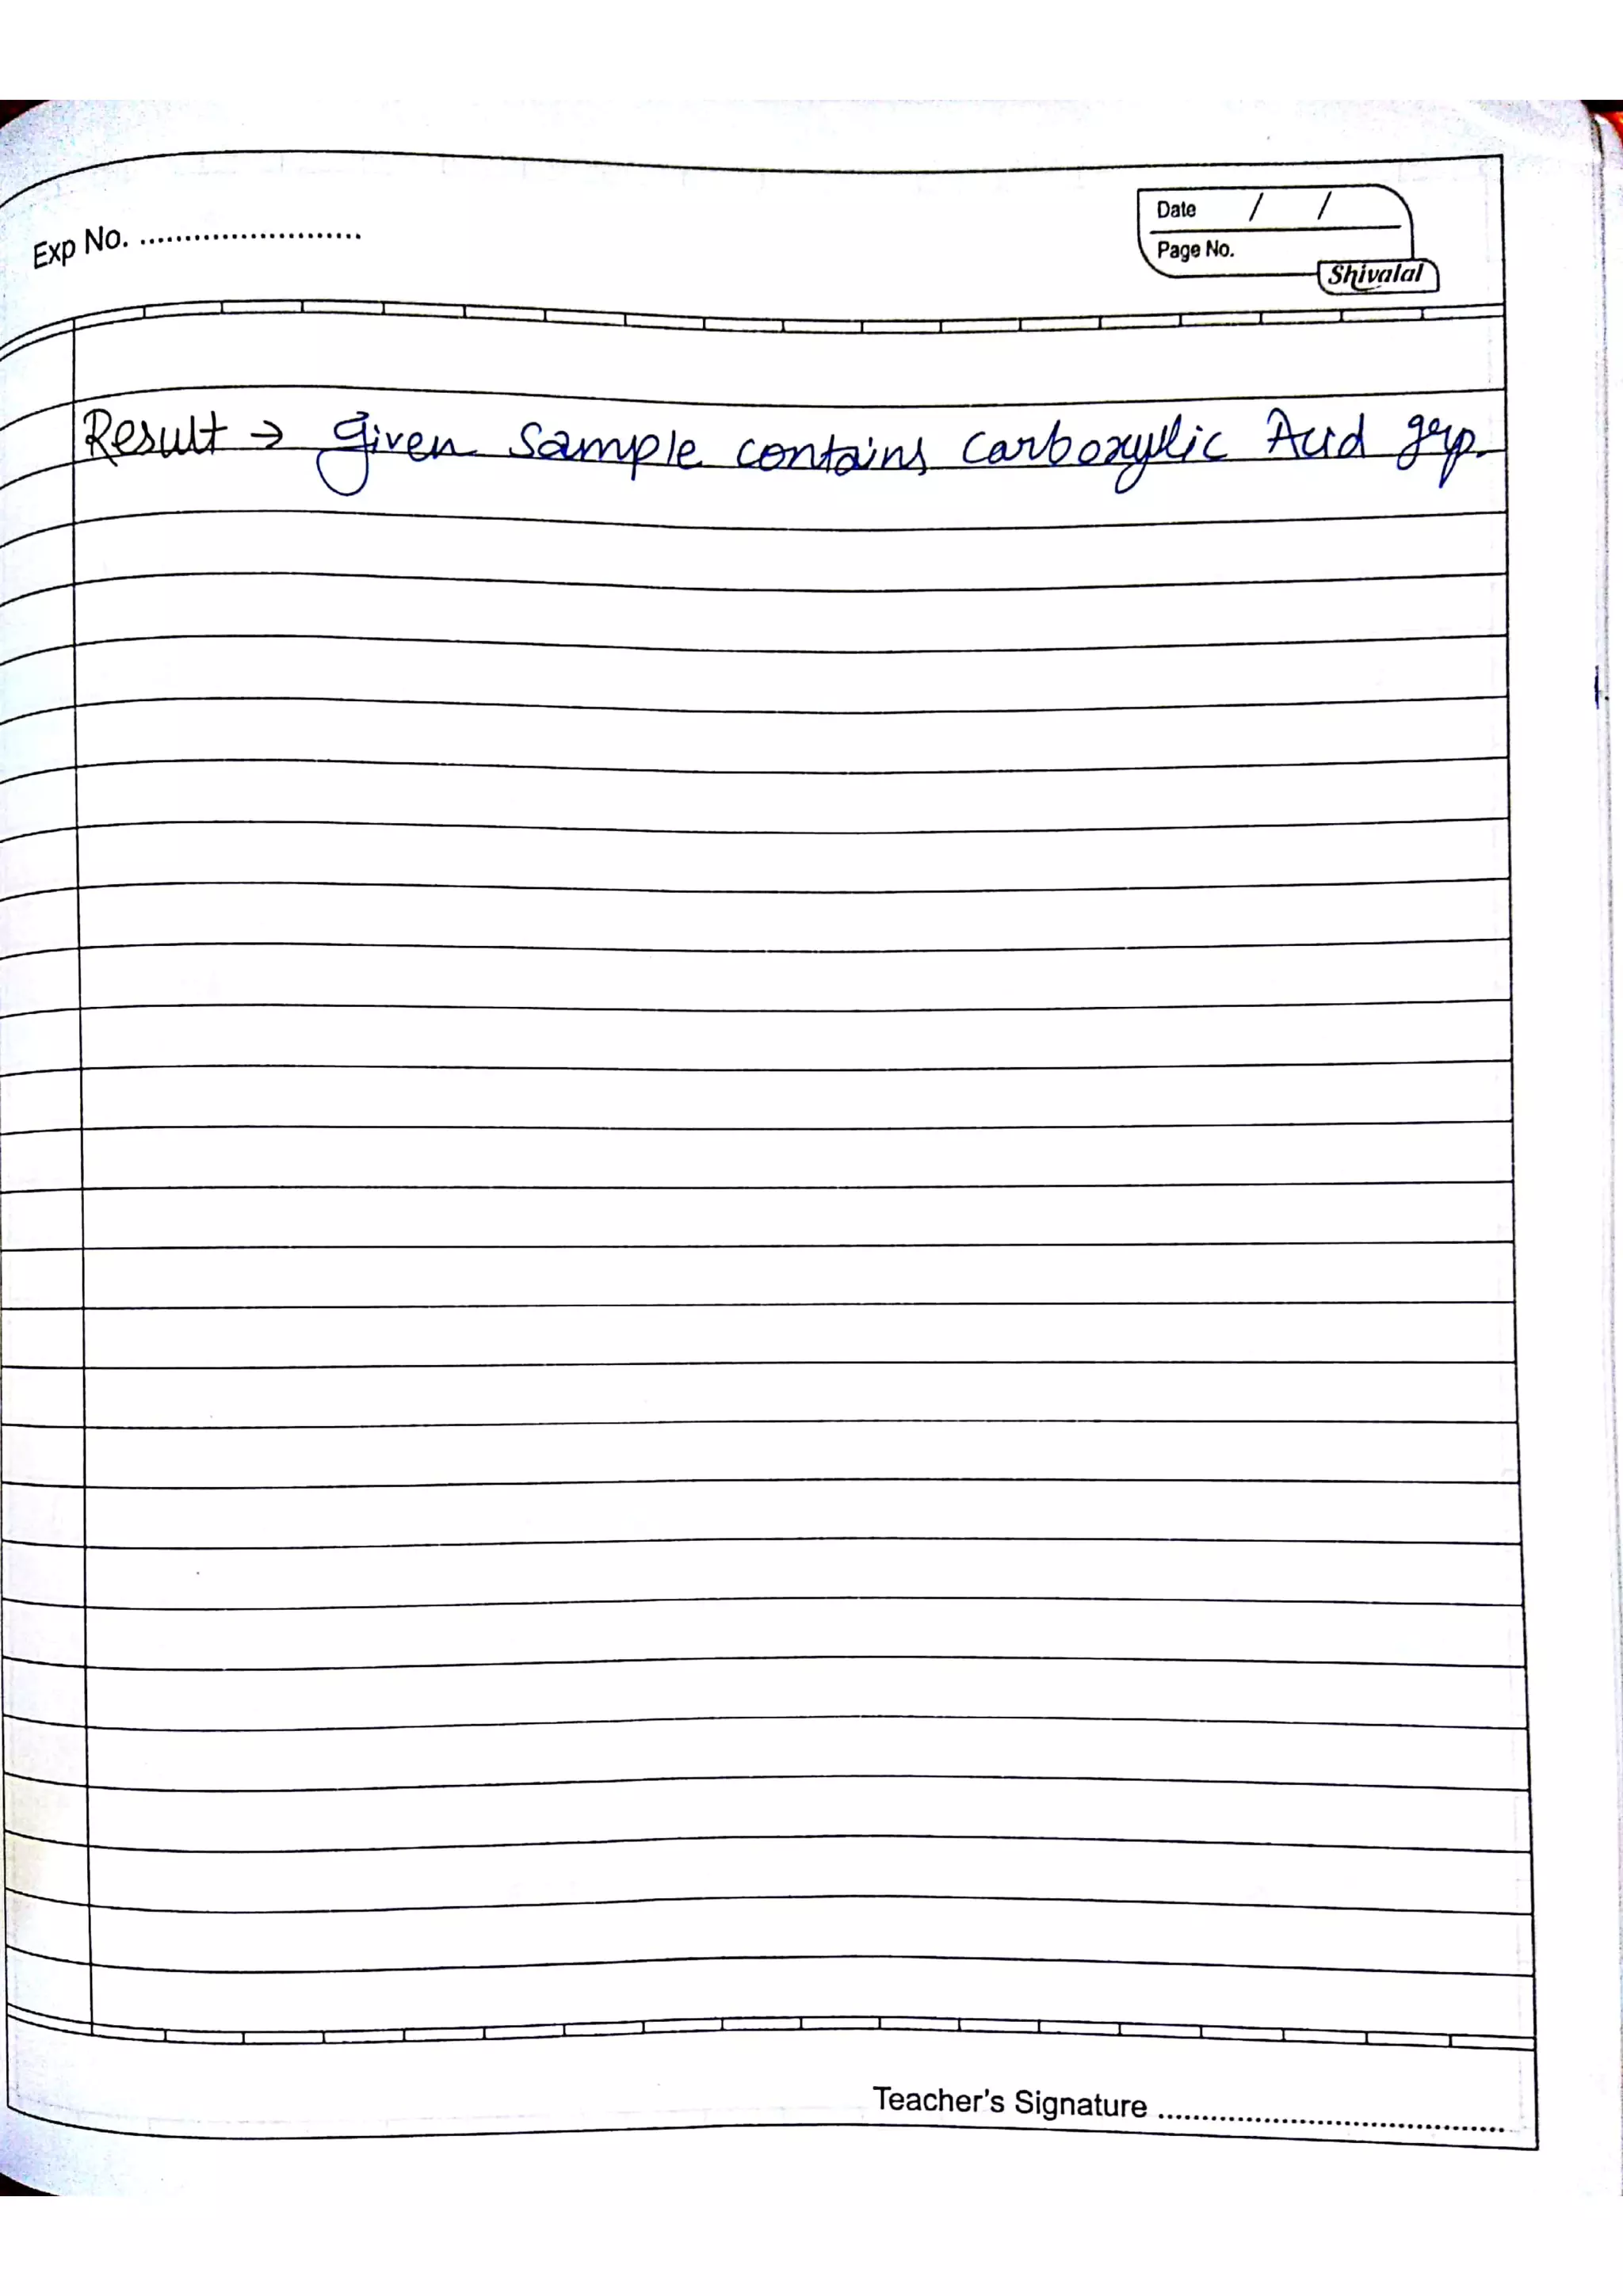 Exp No. ..........................
Date / /
Page No.
Shivalal
Result → given sample contains carboxylic Acid grp.
Teacher's Signature ........................................